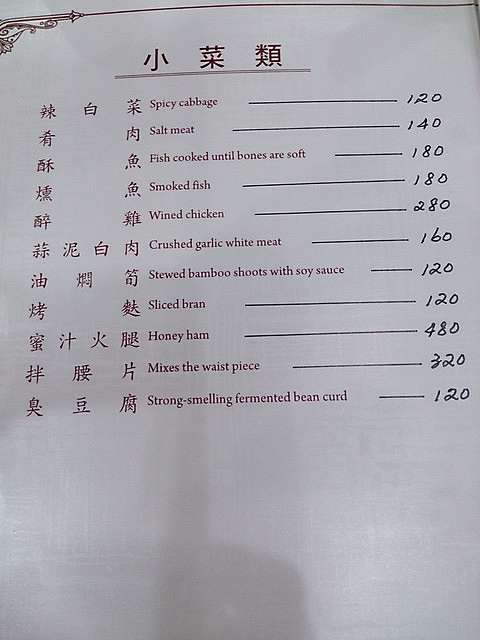 小菜類
辣白菜 Spicy cabbage 120
肴肉 Salt meat 140
酥魚 Fish cooked until bones are soft 180
燻魚 Smoked fish 180
醉雞 Wined chicken 280
蒜泥白肉 Crushed garlic white meat 160
油燜筍 Stewed bamboo shoots with soy sauce 120
烤麩 Sliced bran 120
蜜汁火腿 Honey ham 480
拌腰片 Mixes the waist piece 320
臭豆腐 Strong-smelling fermented bean curd 120